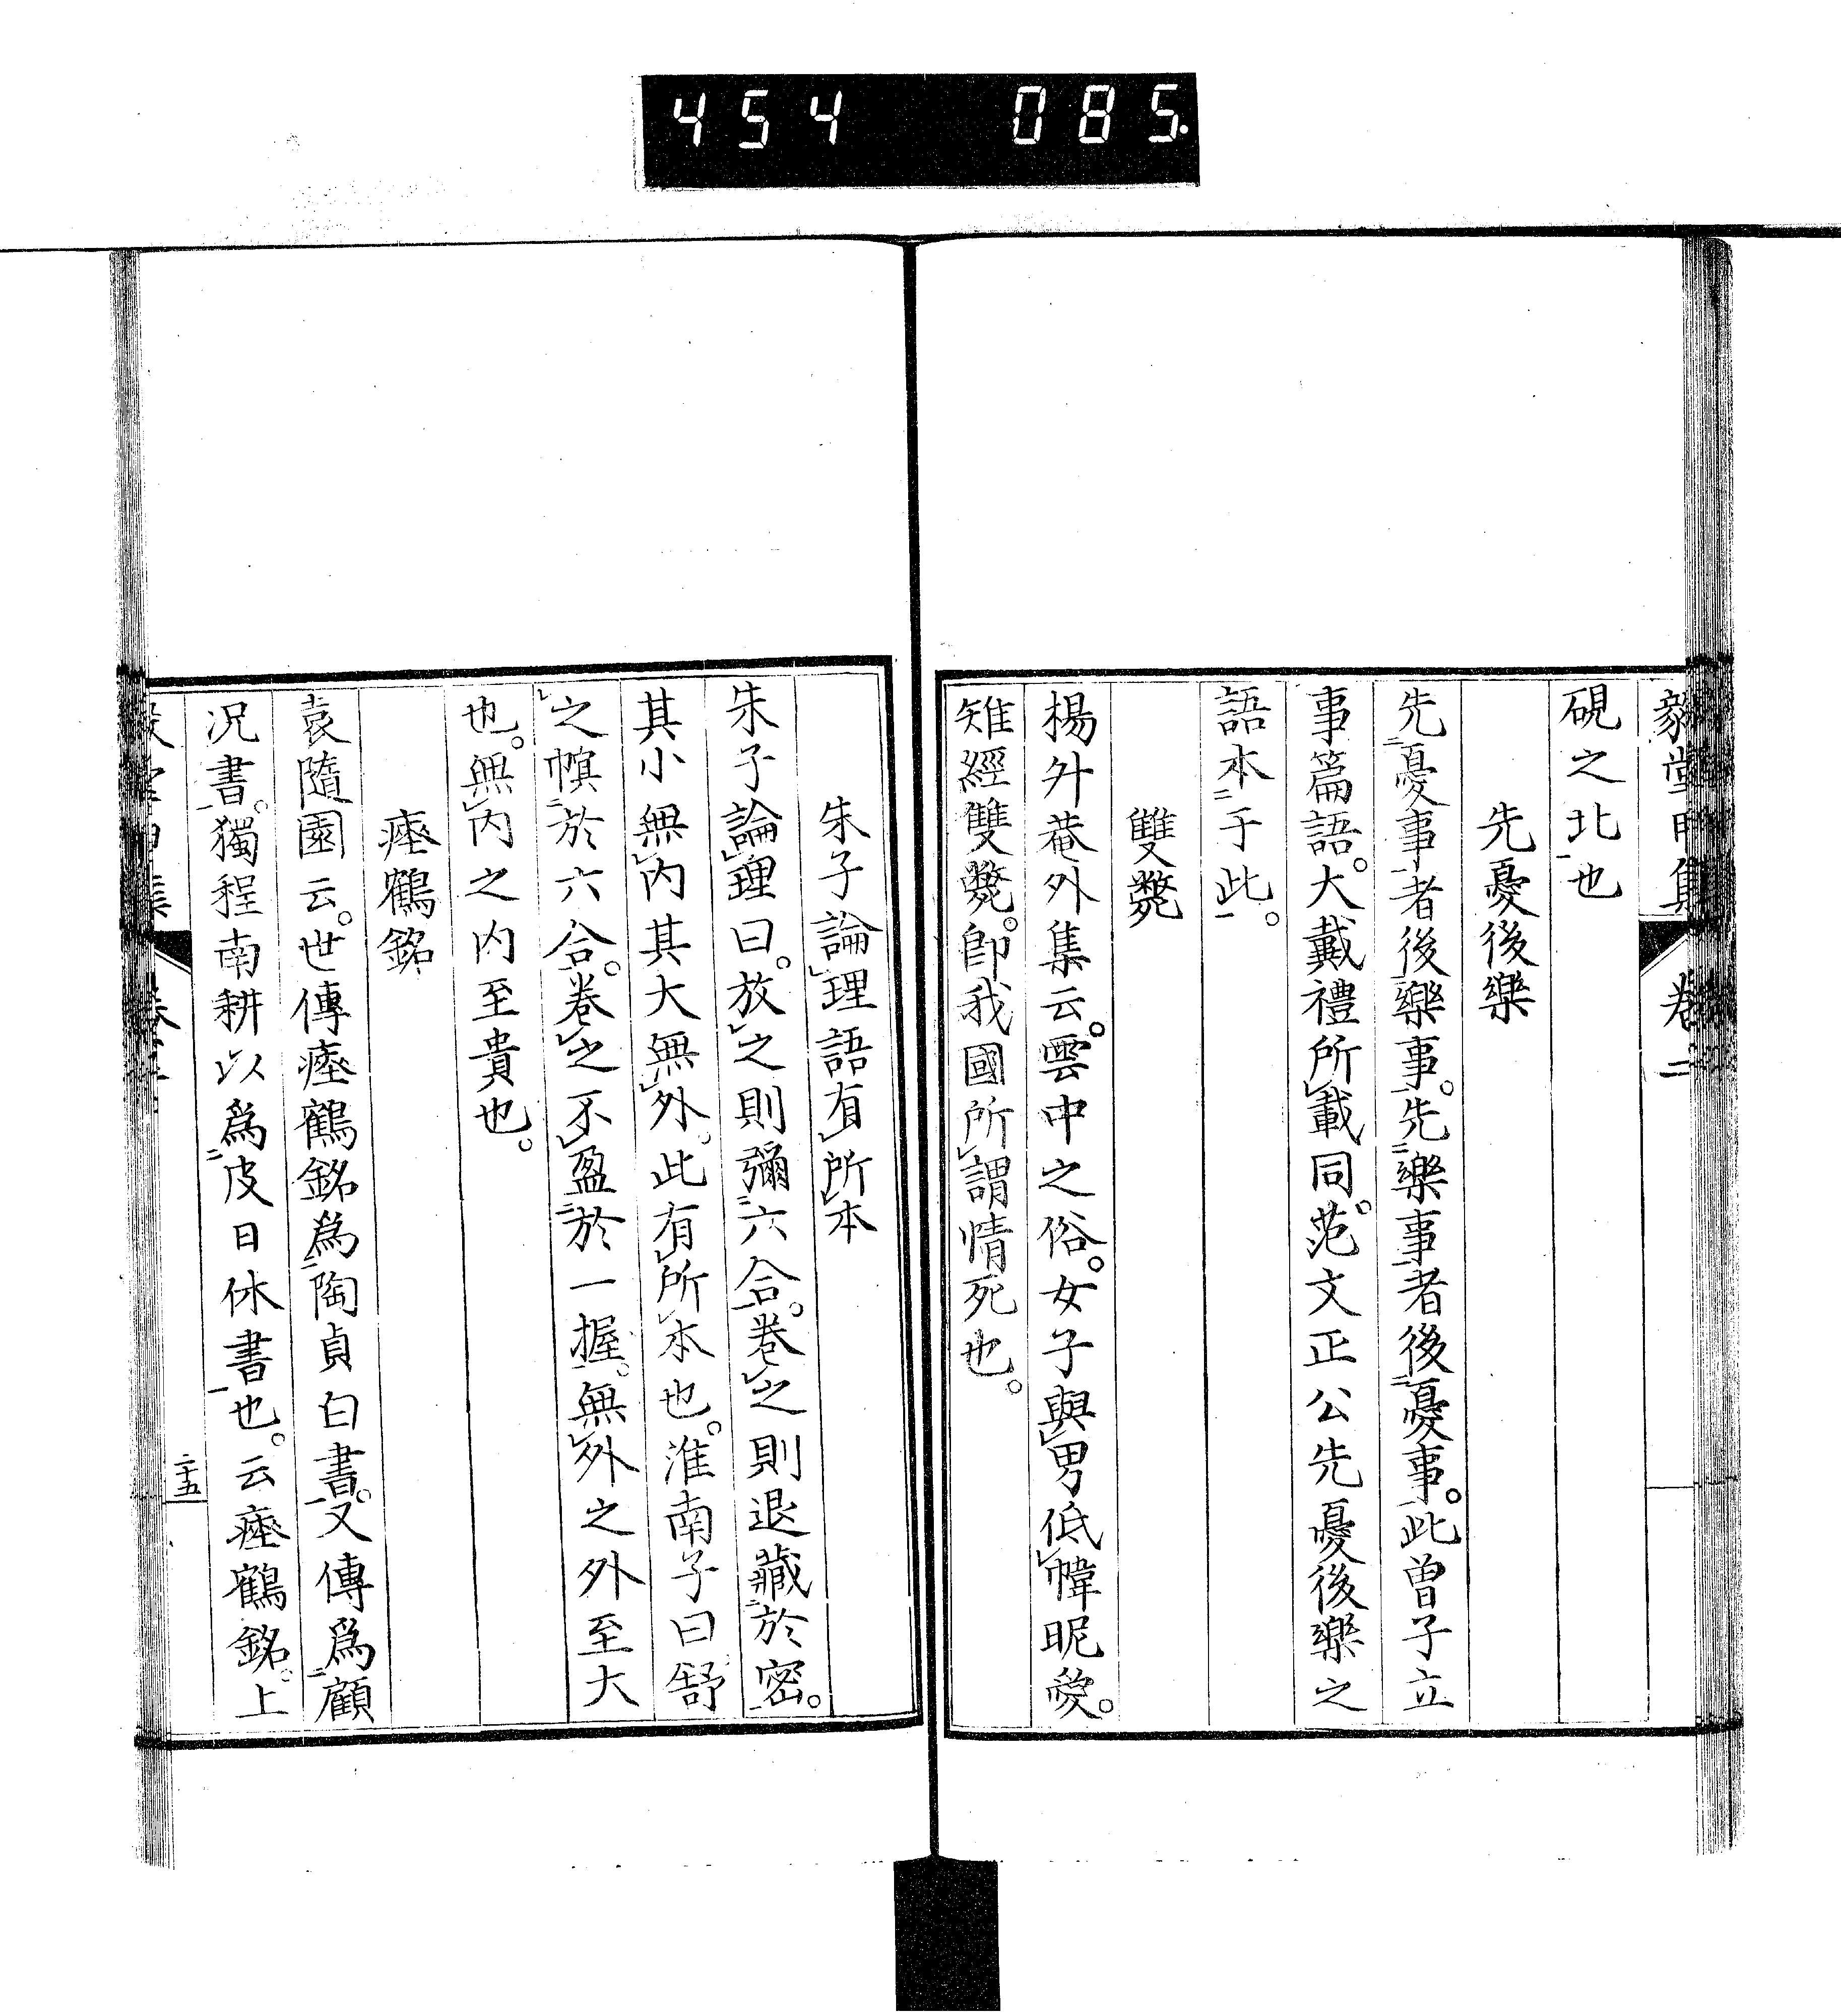 454 085
毅堂甲集 卷二
硯之北也
先憂後樂
先憂事者後樂事。先樂事者後憂事。此曾子立
事篇語。大戴禮所載同。范文正公先憂後樂之
語本于此。
雙斃
楊升菴外集云。雲中之俗。女子與男低幃昵愛。
雉經雙斃。卽我國所謂情死也。
朱子論理語有所本
朱子論理曰。放之則彌六合。卷之則退藏於密。
其小無內其大無外。此有所本也。淮南子曰舒
之幎於六合。卷之不盈於一握。無外之外至大
也。無內之內至貴也。
瘞鶴銘
袁隨園云。世傳瘞鶴銘爲陶貞白書。又傳爲顧
况書。獨程南耕以爲皮日休書也。云瘞鶴銘。上
二十五